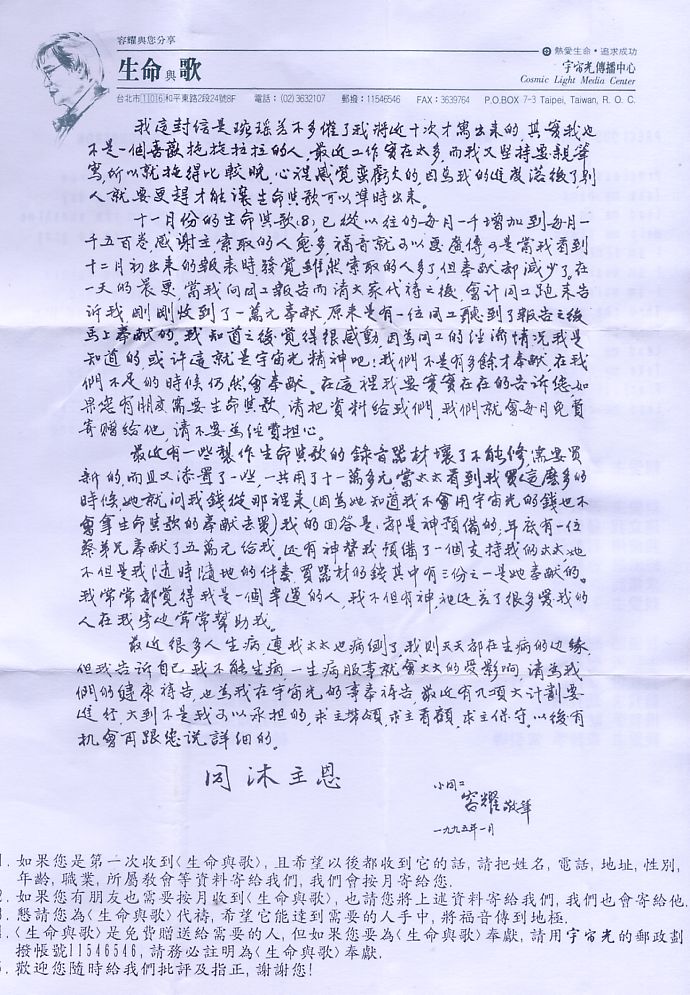 容耀與您分享
熱愛生命・追求成功
生命與歌
宇宙光傳播中心
Cosmic Light Media Center
台北市11016和平東路2段24號8F 電話：(02)3632107 郵撥：11546546 FAX：3639764 P.O.BOX 7-3 Taipei, Taiwan, R. O. C.
我這封信是琬瑤差不多催了我將近十次才寫出來的，其實我也
不是一個喜歡拖拖拉拉的人，最近工作實在太多，而我又堅持要親筆
寫，所以就拖得比較晚，心裡感覺蠻虧欠的，因為我的進度落後了，別
人就要更趕才能讓生命與歌可以準時出來。
十一月份的生命與歌(8)，已從以往的每月一千增加到每月一
千五百卷，感謝主索取的人愈多福音就可以更廣傳，可是當我看到
十二月初出來的報表時發覺雖然索取的人多了但奉獻卻減少了，在
一天的晨更，當我向同工報告而請大家代禱之後，會計同工跑來告
訴我，剛剛收到了一萬元奉獻，原來是有一位同工聽到了報告之後
馬上奉獻的，我知道之後，覺得很感動，因為同工的經濟情況我是
知道的，或許這就是宇宙光精神吧！我們不是有多餘才奉獻，在我
們不足的時候仍然會奉獻。在這裡我要實實在在的告訴您，如
果您有朋友需要生命與歌，請把資料給我們，我們就會每月免費
寄贈給他，請不要為經費担心。
最近有一些製作生命與歌的錄音器材壞了不能修，需要買
新的，而且又添置了一些，一共用了十一萬多元，當太太看到我買這麼多的
時候，她就問我錢從那裡來(因為她知道我不會用宇宙光的錢也不
會拿生命與歌的奉獻去買)我的回答是：都是神預備的，年底有一位
蔡弟兄奉獻了五萬元給我，还有神替我預備了一個支持我的太太，她
不但是我隨時隨地的伴奏，買器材的錢其中有三份之一是她奉獻的。
我常常都覺得我是一個幸運的人，我不但有神，祂还差了很多愛我的
人在我旁边常常幫助我。
最近很多人生病，連我太太也病倒了，我則天天都在生病的边緣，
但我告訴自己，我不能生病，一生病服事就會大大的受影响，請為我
們的健康禱告，也為我在宇宙光的事奉禱告，最近有几項大計劃要
進行，大到不是我可以承担的，求主帶領，求主看顧，求主保守，以後有
机會再跟您说詳細的。
同沐主恩
小同工
容耀敬筆
一九九五年一月
1. 如果您是第一次收到〈生命與歌〉, 且希望以後都收到它的話, 請把姓名, 電話, 地址, 性別,
年齡, 職業, 所屬教會等資料寄給我們, 我們會按月寄給您.
2. 如果您有朋友也需要按月收到〈生命與歌〉, 也請您將上述資料寄給我們, 我們也會寄給他.
3. 懇請您為〈生命與歌〉代禱, 希望它能達到需要的人手中, 將福音傳到地極.
4.〈生命與歌〉是免費贈送給需要的人, 但如果您要為〈生命與歌〉奉獻, 請用宇宙光的郵政劃
撥帳號11546546, 請務必註明為〈生命與歌〉奉獻.
5. 歡迎您隨時給我們批評及指正, 謝謝您!